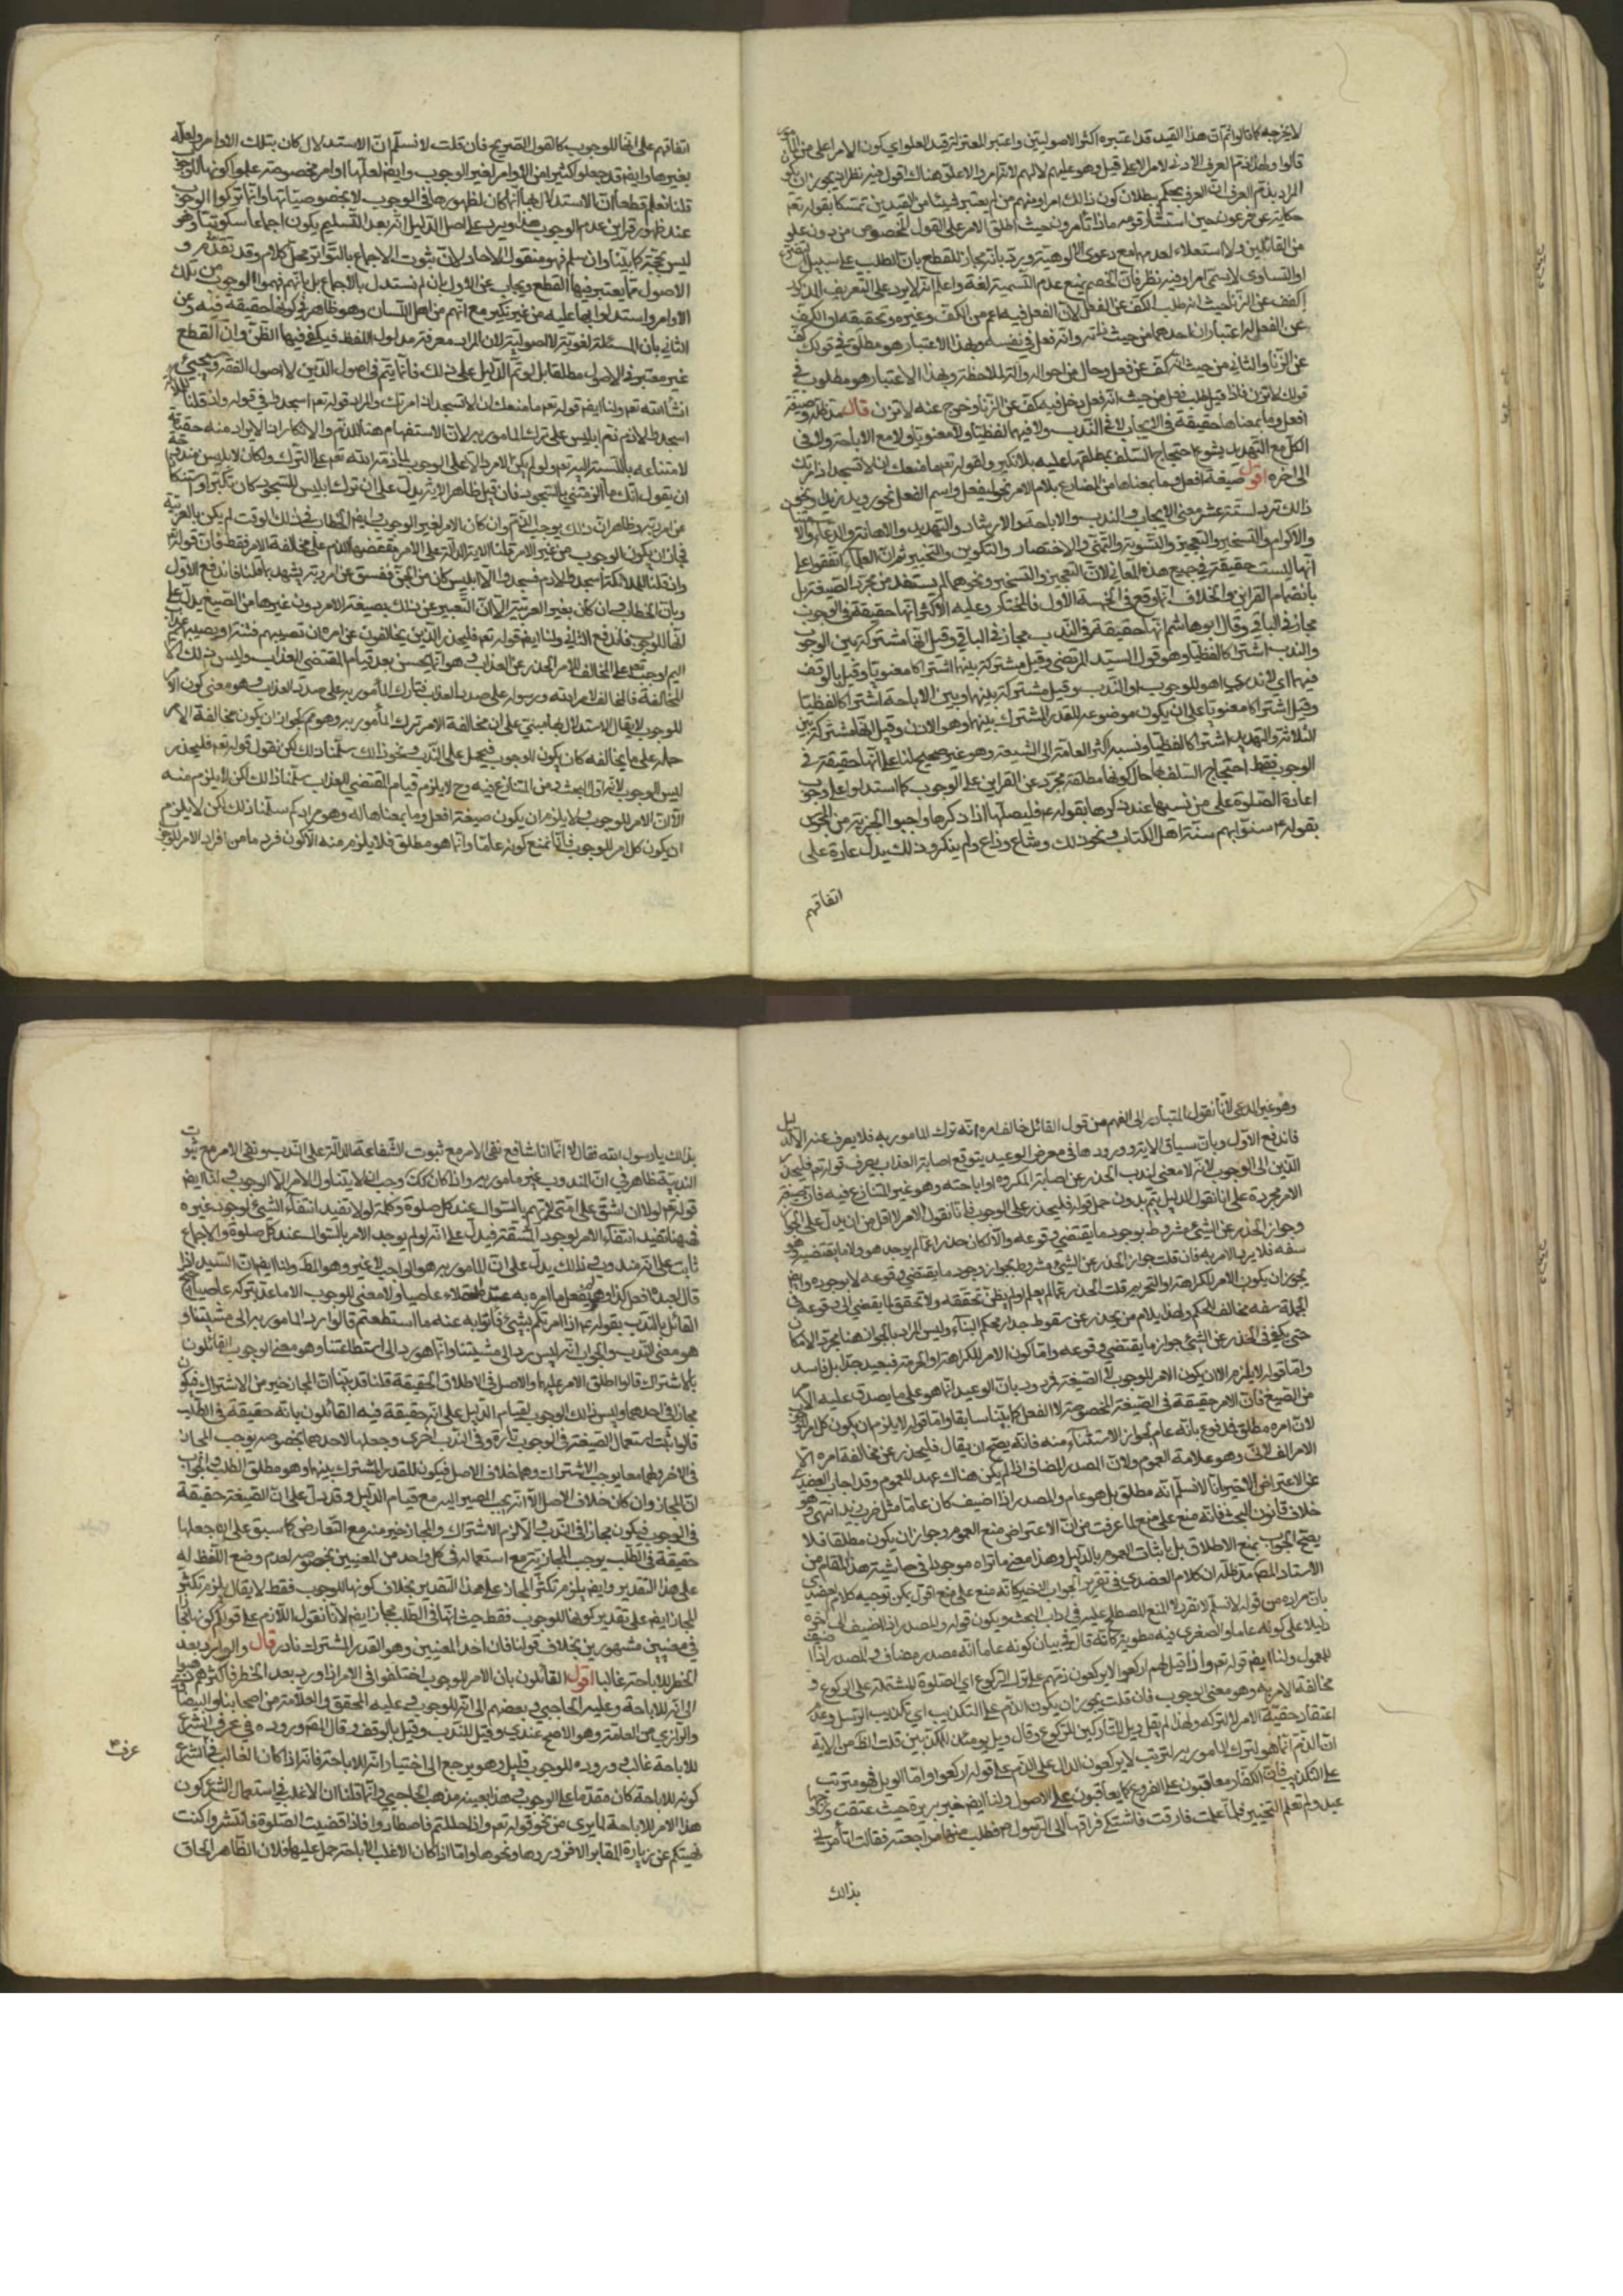 لا يخرجه كما قالوا ثم ان هذا القيد قد اعتبره اكثر الاصوليين واعتبر المعتزلة قيد العلو اي كون الامر اعلى من المأمور
قالوا ولهذا ذم العرف الادنى لامر الاعلى قيل وهو عليهم لا لهم لانه امر ولا علو هناك اقول فيه نظر اذ يجوز ان يكون
المراد بذم العرف ان العرف يحكم ببطلان كون ذلك امرا ومنهم من لم يعتبر شيئا من القيدين تمسكا بقوله تعالى
حكاية عن فرعون حين استشار قومه ماذا تأمرون حيث اطلق الامر على القول المخصوص من دون علو
من القائلين ولا استعلاء لعدمهما مع دعوى الالوهية ويرد بانه مجاز للقطع بان الطلب على سبيل التضرع
او التساوي لا يسمى امرا وفيه نظر فان الخصم يمنع عدم التسمية لغة واعلم انه لا يرد على التعريف المذكور
اكفف عن الزنا حيث انه طلب الكف عن الفعل لان الفعل فيه اعم من الكف وغيره وتحقيقه ان الكف
عن الفعل له اعتباران احدهما من حيث ذاته وانه فعل في نفسه وبهذا الاعتبار هو مطلق في قولك كف
عن الزنا والثاني من حيث انه كف عن فعل وحال من احواله وآلة لملاحظته وبهذا الاعتبار هو مطلوب في
قولك لا تزن فاذا قيل طلب فعل من حيث انه فعل دخل فيه كف عن الزنا وخرج عنه لا تزن قال مد ظله وصيغة
افعل وما بمعناها حقيقة في الايجاب لا في الندب ولا فيهما لفظيا ولا معنويا ولا مع الاباحة ولا في
الكل مع التهديد لشيوع احتجاج السلف بمطلقها عليه بلا نكير ولقوله تعالى ما منعك ان لا تسجد اذ امرتك
الى اخره اقول صيغة افعل وما بمعناها من المضارع بلام الامر نحو ليفعل واسم الفعل نحو رويد زيدا ونحو
ذلك ترد لستة عشر معنى الايجاب والندب والاباحة والارشاد والتهديد والاهانة والدعاء والامتنان
والاكرام والتسخير والتعجيز والتسوية والتمني والاحتقار والتكوين والتخيير ثم ان العلماء اتفقوا على
انها ليست حقيقة في جميع هذه المعاني لان التعجيز والتسخير ونحوهما لم يستفد من مجرد الصيغة بل
بانضمام القرائن والخلاف انما وقع في الخمسة الأول فالمختار وعليه الاكثر انها حقيقة في الوجوب
مجاز في الباقي وقال ابو هاشم انها حقيقة في الندب مجاز في الباقي وقيل انها مشتركة بين الوجوب
والندب اشتراكا لفظيا وهو قول السيد المرتضى وقيل مشتركة بينهما اشتراكا معنويا وقيل بالوقف
فيهما اي لا ندري اهو للوجوب او الندب وقيل مشتركة بينهما وبين الاباحة اشتراكا لفظيا
وقيل اشتراكا معنويا على ان يكون موضوعه للقدر المشترك بينها وهو الاذن وقيل انها مشتركة بين
الثلاثة والتهديد اشتراكا لفظيا ونسبه اكثر العامة الى الشيعة وهو غير صحيح لنا على انها حقيقة في
الوجوب فقط احتجاج السلف بها حال كونها مطلقة مجردة عن القرائن على الوجوب كما استدلوا على وجوب
اعادة الصلوة على من نسيها عند ذكرها بقوله ع فليصلها اذا ذكرها واوجبوا الجزية من المجوس
بقوله ع سنوا بهم سنة اهل الكتاب ونحو ذلك وشاع وذاع ولم ينكر وذلك يدل عادة على
اتفاقهم
اتفاقهم على انها للوجوب كالقول الصريح فان قلت لا نسلم ان الاستدلال كان بتلك الاوامر ولعله
بغيرها وايضا قد جعلوا كثيرا من الاوامر لغير الوجوب وايضا لعلها اوامر مخصوصة علموا كونها للوجوب
قلنا نعلم قطعا ان الاستدلال بها انما كان لظهورها في الوجوب لا بخصوصياتها وانما تركوا الوجوب
عند ظهور قراين عدم الوجوب هذا ويرد على اصل الدليل انه بعد التسليم يكون اجماعا سكوتيا وهو
ليس بحجة كما بينا وان سلم فهو منقول بالاحاد لان ثبوت الاجماع بالتواتر محل كلام وقد تقدم و
الاصول مما يعتبر فيها القطع ويجاب عن الاول بان لم نستدل بالاجماع بل بانهم فهموا الوجوب من تلك
الاوامر واستدلوا بها عليه من غير نكير مع انهم من اهل اللسان وهو ظاهر في كونها حقيقة فيه وعن
الثاني بان المسئلة لغوية لا اصولية لان المراد معرفة مدلول اللفظ فيكفي فيها الظن وان القطع
غير معتبر في الاصول مطلقا بل لو تم الدليل على ذلك فانما يتم في اصول الدين لا اصول الفقه وسيجيء
انشاءالله تعالى ولنا ايضا قوله تعالى ما منعك ان لا تسجد اذ امرتك والمراد قوله تعالى اسجدوا في قوله واذ قلنا للملائكة
اسجدوا لادم ذم ابليس على ترك المامور به لان الاستفهام هنا للذم والانكار اذ لا يراد منه حقيقته
لامتناعه بالنسبة اليه تعالى ولو لم يكن الامر دالا على الوجوب لما ذمه الله تعالى على الترك ولكان لابليس مندوحة
ان يقول انك ما الزمتني بالسجود فان قيل ظاهر الاية يدل على ان ترك ابليس للسجود كان تكبرا واستنكافا
عن امر ربه وظاهر ان ذلك يوجب الذم وان كان الامر لغير الوجوب وايضا الخطاب في ذلك الوقت لم يكن بالعربية
فجاز ان يكون الوجوب من غير الامر قلنا الاية الدالة على الامر يقتضي الذم على مخالفة الامر فقط فان قوله تعالى
واذ قلنا للملائكة اسجدوا لادم فسجدوا الا ابليس كان من الجن ففسق عن امر ربه يشهد بما قلنا فاندفع الاول
وبان الخطاب وان كان بغير العربية الا ان التعبير عن ذلك بصيغة الامر دون غيرها من الصيغ يدل على
انها للوجوب فاندفع الثاني ولنا ايضا قوله تعالى فليحذر الذين يخالفون عن امره ان تصيبهم فتنة او يصيبهم عذاب
اليم اوجب تعالى على المخالف للامر الحذر عن العذاب وهو انما يحسن بعد قيام المقتضي للعذاب وليس ذلك الا
المخالفة فالمخالف لامر الله ورسوله على صدد العذاب فتارك المأمور به على صدد العذاب وهو معنى كون الامر
للوجوب لا يقال الاستدلال بها مبني على ان مخالفة الامر ترك المأمور به وهو مم لجواز ان يكون مخالفة الامر
حمله على ما يخالفه كان يكون للوجوب فيحمل على الندب ونحو ذلك سلمنا ذلك لكن نقول قوله تعالى فليحذر
ليس للوجوب لانه اول البحث ومن المتنازع فيه وح لا يلزم قيام المقتضي للعذاب سلمنا ذلك لكن لا يلزم منه
الا ان الامر للوجوب ولا يلزم ان يكون صيغة افعل وما بمعناها له وهو مرادكم سلمنا ذلك لكن لا يلزم
ان يكون كل امر للوجوب فانا نمنع كونه عاما وانما هو مطلق فلا يلزم منه الا كون فرد ما من افراد الامر للوجوب
وهو غير المدعى لانا نقول المتبادر الى الفهم من قول القائل خالف امره انه ترك المامور به فلا يصرف عنه الا لدليل
فاندفع الاول وبان سياق الاية وورودها في معرض الوعيد يتوقع اصابة العذاب يصرف قوله تعالى فليحذر
الذين الى الوجوب لانه لا معنى لندب الحذر عن اصابة المكروه او اباحته وهو غير المتنازع فيه فانه صيغة
الامر مجردة على انا نقول الدليل يتم بدون حمل قوله فليحذر على الوجوب فانا نقول الامر لا اقل من ان يدل على الجواز
وجواز الحذر عن الشيء مشروط بوجود ما يقتضي وقوعه والا لكان حذرا عما لم يوجد هو ولا ما يقتضيه وهو
سفه فلا يرد الامر به فان قلت جواز الحذر عن الشيء مشروط بجواز وجود ما يقتضي وقوعه لا بوجوده وايضا
يجوز ان يكون الامر للكراهة او التحريم قلت الحذر عما لم يعلم او لم يظن تحققه ولا تحقق لما يقضي الى وقوعه في
الجملة سفه مخالف للحكم ولهذا يلام من يحذر عن سقوط جدار محكم البناء وليس المراد بالجواز هنا مجرد الامكان
حتى يكفي في الحذر عن الشيء جواز ما يقتضي وقوعه واما كون الامر للكراهة او الحرمة فبعيد جدا بل فاسد
واما قوله لا يلزم الا ان يكون الامر للوجوب لا الصيغة فمردود بان الوعيد انما هو على ما يصدق عليه الامر
من الصيغ فان الامر حقيقة في الصيغة المخصوصة لا الفعل كما بينا سابقا واما قوله لا يلزم ان يكون كل امر للوجوب
لان امره مطلق فمدفوع بانه عام لجواز الاستثناء منه فانه يصح ان يقال فليحذر عن مخالفة امره الا
الامر الفلاني وهو علامة العموم ولان المصدر المضاف اذا لم يكن هناك عهد للعموم وقد اجاب العضدي
عن الاعتراض الاخير وانا لا نسلم انه مطلق بل هو عام والمصدر اذا اضيف كان عاما مثل ضرب زيد انتهى وهو
خلاف قانون البحث فانه منع على منع لما عرفت من ان الاعتراض منع العموم وجواز ان يكون مطلقا فلا
يصح الجواب بمنع الاطلاق بل باثبات العموم بالدليل وهذا معنى ما تراه موجودا في حاشية هذا المقام من
الاستاد المص مد ظله ان كلام العضدي في تقرير الجواب الاخير كانه منع على منع اقول يمكن توجيه كلام العضدي
بان مراده من قوله لا نسلم لا نقر لا المنع المصطلح عليه في اداب البحث ويكون قوله والمصدر اذا اضيف الى اخره
دليلا على كونه عاما والصغرى فيه مطوية كانه قال في بيان كونه عاما انه مصدر مضاف والمصدر اذا اضيف
للعموم ولنا ايضا قوله تعالى واذا قيل لهم اركعوا لا يركعون ذمهم على ترك الركوع اي الصلوة المشتملة على الركوع و
مخالفة الامر به وهو معنى الوجوب فان قلت يجوز ان يكون الذم على التكذيب اي تكذيب الرسل وعدم
اعتقاد حقية الامر لا لتركه ولهذا لم يقل ويل للتاركين للركوع وقال ويل يومئذ للمكذبين قلت الظ من الاية
ان الذم انما هو لترك المامور به لترتب لا يركعون الدال على الذم على قوله اركعوا واما الويل فهو مترتب
على التكذيب فان الكفار معاقبون على الفروع كما يعاقبون على الاصول ولنا ايضا خبر بريرة حيث عتقت وزوجها
عبد ولم تعلم التخيير فلما علمت فارقت فاشتكى فراقها الى الرسول ص فطلب منها مراجعته فقالت اتأمرني
بذلك
بذلك يا رسول الله فقال لا انما انا شافع نفى الامر مع ثبوت الشفاعة الدالة على الندب ونفي الامر مع ثبوت
الندبية ظاهر في ان المندوب غير مامور به واذا كان كك وجب ان لا يتناول الامر الا الوجوب ولنا ايضا
قوله ع لولا ان اشق على امتي لامرتهم بالسواك عند كل صلوة وكلمة لولا تفيد انتفاء الشيء لوجود غيره
فههنا تفيد انتفاء الامر لوجود المشقة فيدل على انه لم يوجد الامر بالسواك عند كل صلوة والاجماع
ثابت على انه مندوب وذلك يدل على ان المامور به هو الواجب لا غير وهو المط ولنا ايضا ان السيد اذا
قال لعبده افعل كذا ولم يفعل ما امره به عده العقلاء عاصيا ولا معنى للوجوب الا ما عد بتركه عاصيا احتج
القائل بالندب بقوله ع اذا امرتكم بشيء فأتوا به عنه ما استطعتم قالوا رد المامور به الى مشيتنا و
هو معنى الندب والجواب انه ليس ردا الى مشيتنا وانما هو رد الى استطاعتنا وهو معنى الوجوب القائلون
بالاشتراك قالوا اطلق الامر عليهما والاصل في الاطلاق الحقيقة قلنا قد بينا ان المجاز خير من الاشتراك فيكون
مجازا في احدهما وليس ذلك الوجوب لقيام الدليل على انه حقيقة فيه القائلون بانه حقيقة في الطلب
قالوا ثبت استعمال الصيغة في الوجوب تارة وفي الندب اخرى وجعلها لاحدهما بخصوصه يوجب المجاز
في الاخر ولهما معا يوجب الاشتراك وهما خلاف الاصل فيكون للقدر المشترك بينهما وهو مطلق الطلب والجواب
ان المجاز وان كان خلاف الاصل الا انه يجب المصير اليه مع قيام الدليل وقد دل على ان الصيغة حقيقة
في الوجوب فيكون مجازا في الندب والا لزم الاشتراك والمجاز خير منه مع التعارض كما سبق على ان جعلها
حقيقة في الطلب يوجب المجازية مع استعماله في كل واحد من المعنيين بخصوصه لعدم وضع اللفظ له
على هذا التقدير وايضا يلزم تكثر المجاز على هذا التقدير بخلاف كونها للوجوب فقط لا يقال يلزم تكثر
المجاز ايضا على تقدير كونها للوجوب فقط حيث انها في الطلب مجاز ايضا لانا نقول اللازم على قولكم كونها مجازا
في معنيين مشهورين بخلاف قولنا فان احد المعنيين وهو القدر المشترك نادر قال والوارد بعد
الحظر للاباحة غالبا اقول القائلون بان الامر للوجوب اختلفوا في الامر اذا ورد بعد الحظر فاكثرهم ذهبوا
الى انه للاباحة وعليه الحاجبي وبعضهم الى انه للوجوب وعليه المحقق والعلامة من اصحابنا والبيضاوي
والرازي من العامة وهو الاصح عندي وقيل للندب وقيل بالوقف وقال المص وروده في عرف الشرع
للاباحة غالب وروده للوجوب قليل وهو يرجع الى اختيار انه للاباحة فانه اذا كان الغالب في الشرع
كونه للاباحة كان مقدما على الوجوب وهذا بعينه مذهب الحاجبي وانما قلنا ان الاغلب في استعمال الشرع كون
هذا الامر للاباحة لما يرى من نحو قوله تعالى واذا حللتم فاصطادوا فاذا قضيت الصلوة فانتشروا كنت
نهيتكم عن زيارة المقابر الا فزوروها ونحوها واما اذا كان الاغلب الاباحة حمل عليها فلان الظاهر الحاق
عرف